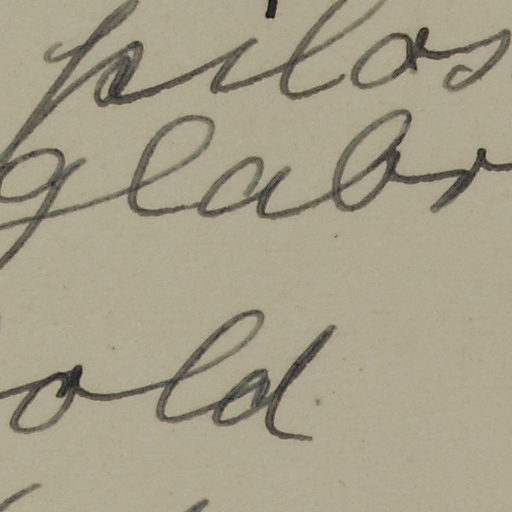 pilos
glabr
old